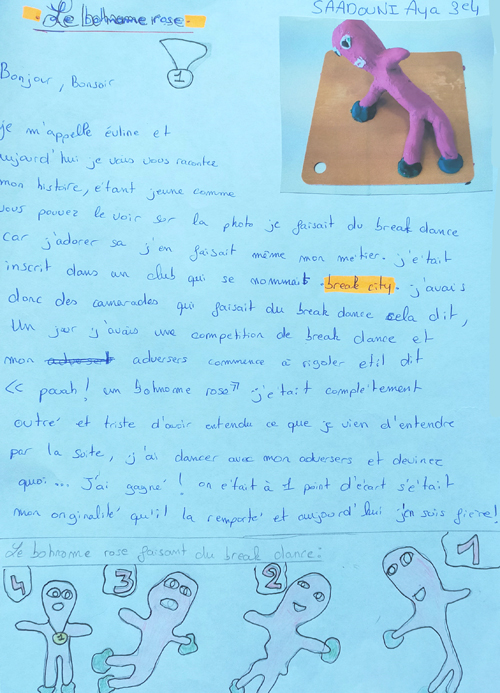 SAADOUNI Aya 3e4
Le bohnome rose.
1
Bonjour, Bonsoir
je m'appelle évline et
aujourd'hui je vais vous racontez
mon histoire, étant jeune comme
vous pouvez le voir sur la photo je faisait du break dance
car j'adorer sa j'en faisait même mon metier. j'etait
inscrit dans un club qui se nommait break city. j'avais
donc des camarades qui faisait du break dance cela dit,
Un jour j'avais une competition de break dance et
mon adversers commence à rigoler et il dit
<< pouah! um bohnome rose >> j'etait complètement
outré et triste d'avoir entendu ce que je vien d'entendre
par la suite, j'ai dancer avec mon adversers et devinez
quoi... J'ai gagné! on était à 1 point d'écart s'était
mon originalité qu'il la remporté et aujourd'hui j'en suis fière!
Le bohnome rose faisant du break dance:
4 3 2 1
1